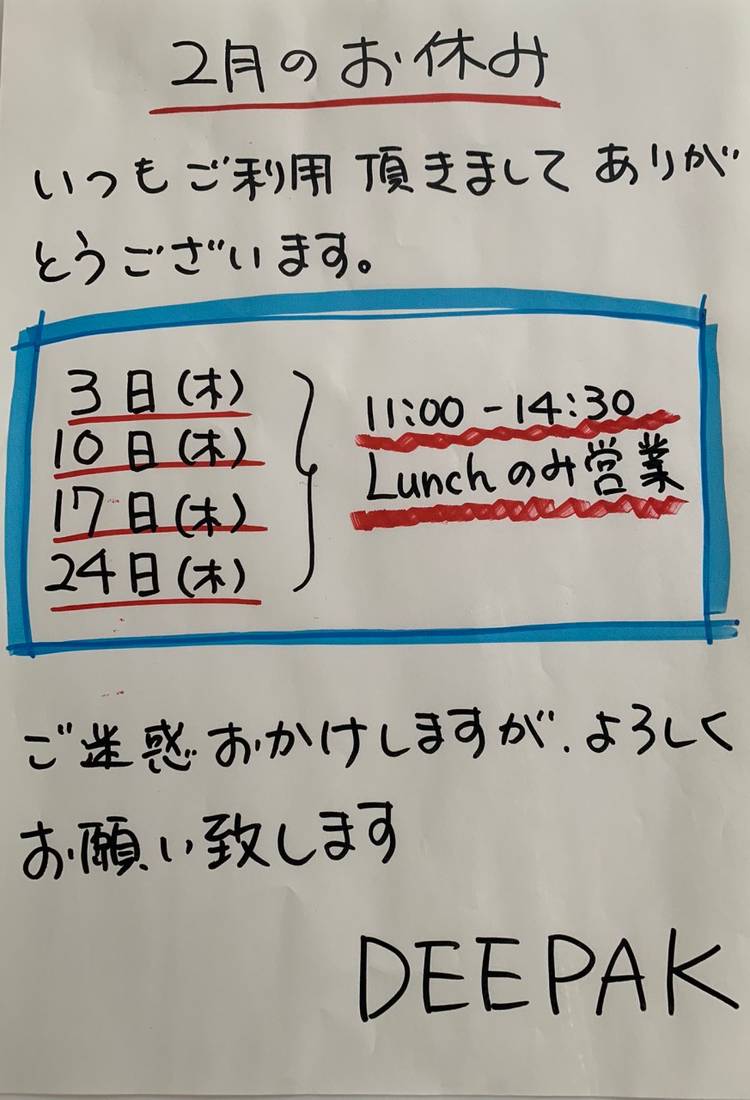 2月のお休み
いつもご利用頂きまして ありが
とうございます。
3日(木)
10日(木)
17日(木)
24日(木)
11:00-14:30
Lunchのみ営業
ご迷惑おかけしますが、よろしく
お願い致します
DEEPAK